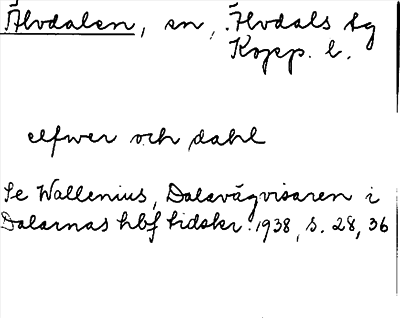 Älvdalen, sn, Älvdals tg
Kopp. l.
elfwer och dahl
Se Wallenius, Dalavägvisaren i
Dalarnas hbf tidskr. 1938, s. 28, 36